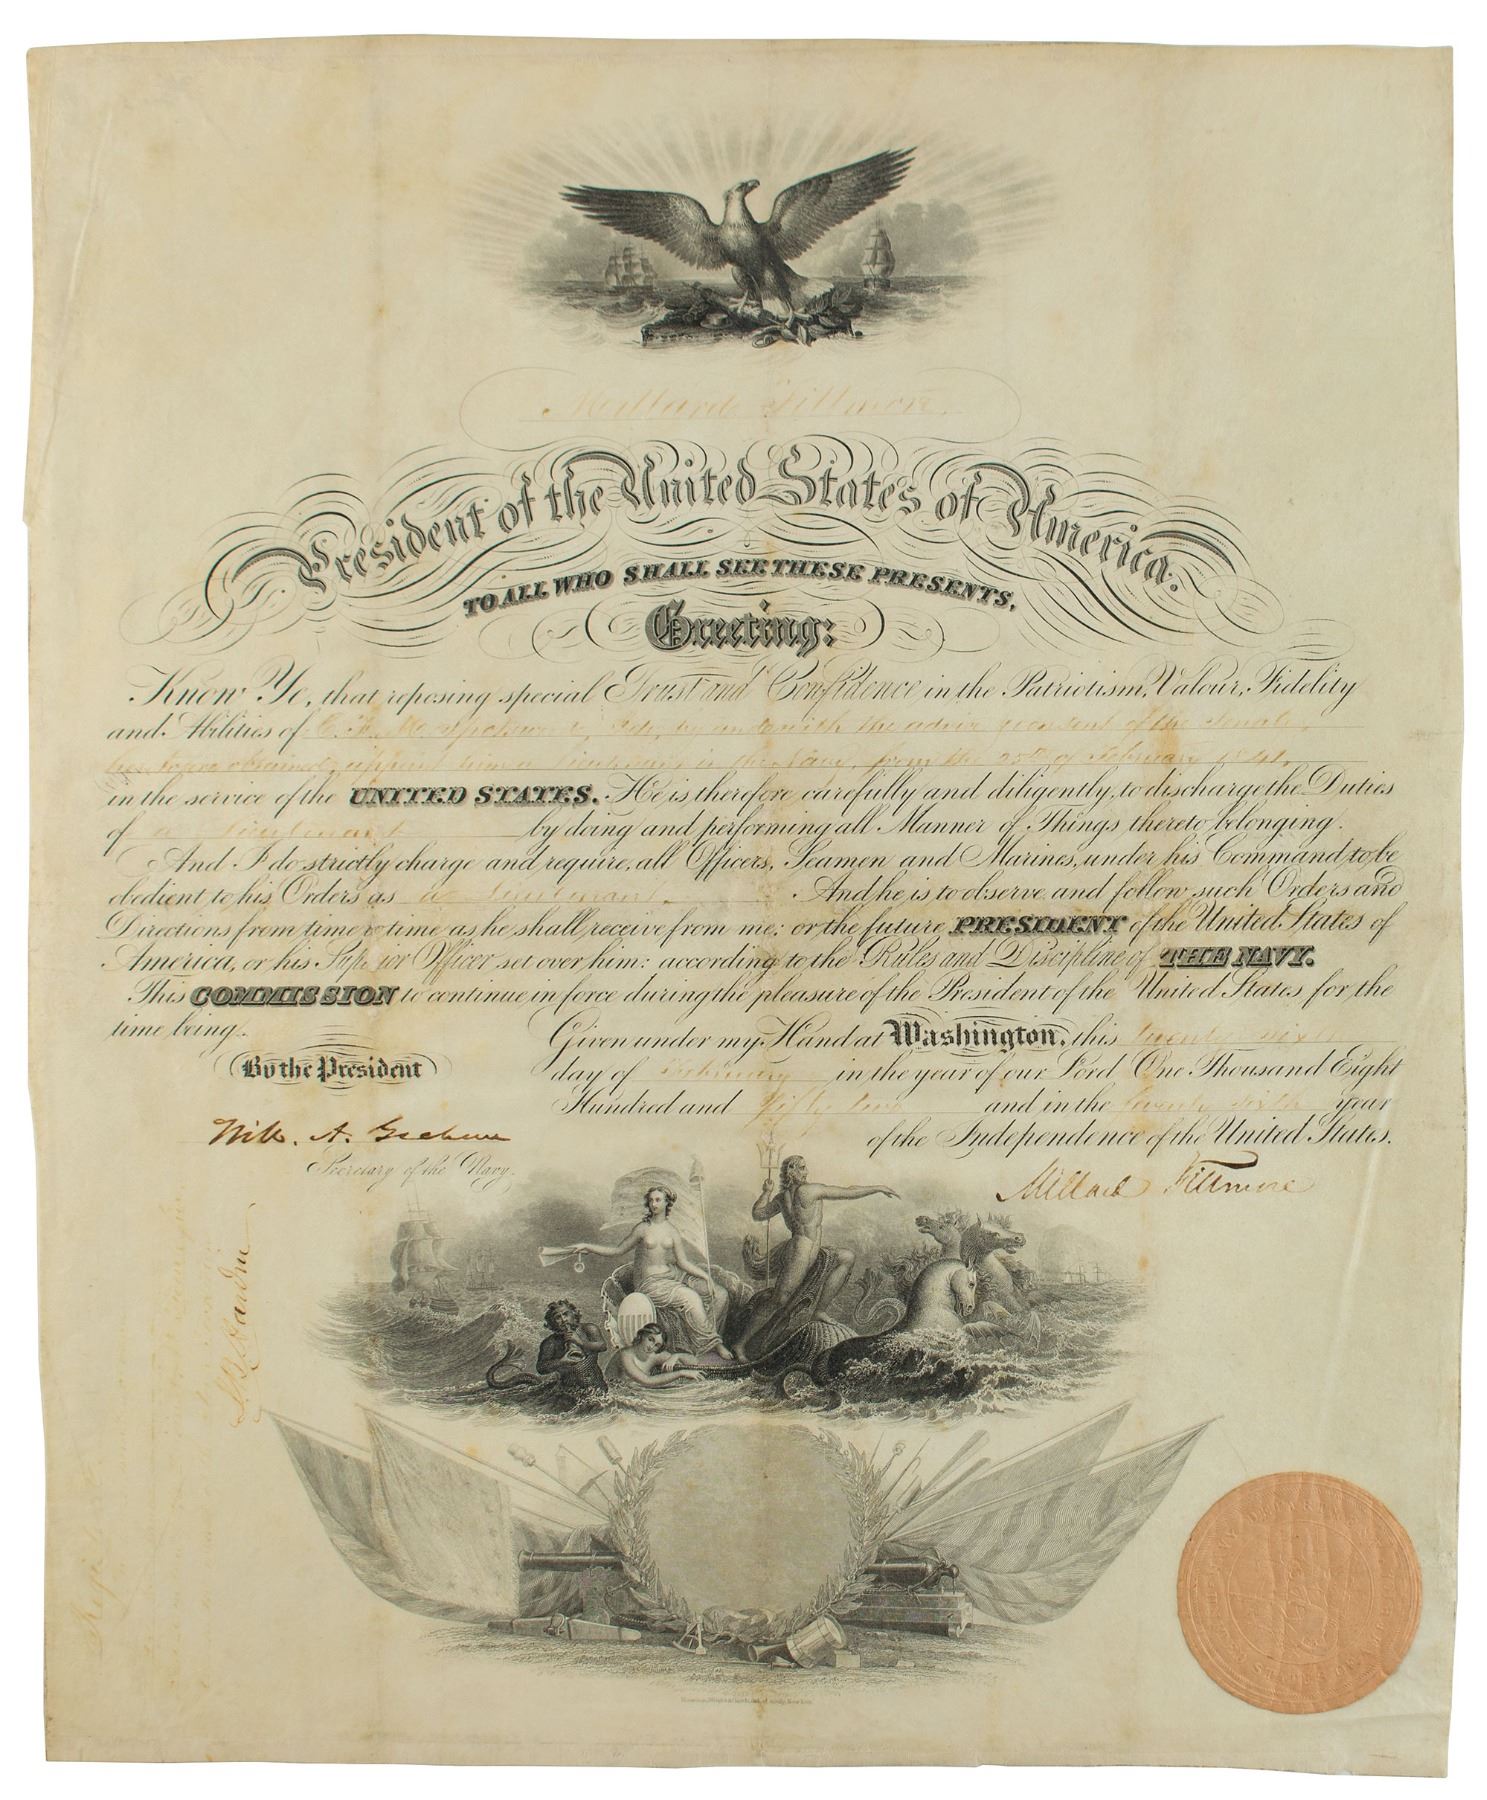 Millard Fillmore
President of the United States of America.
TO ALL WHO SHALL SEE THESE PRESENTS,
Greeting:
Know Ye, that reposing special Trust and Confidence in the Patriotism, Valour, Fidelity
and Abilities of C. by and with the advice consent of the Senate,
appoint him a Lieutenant in the Navy, from the 25th of February
in the service of the UNITED STATES. He is therefore carefully and diligently to discharge the Duties
of a Lieutenant by doing and performing all Manner of Things thereto belonging.
And I do strictly charge and require all Officers, Seamen and Marines, under his Command to be
obedient to his Orders as a Lieutenant. And he is to observe and follow such Orders and
Directions from time to time as he shall receive from me: or the future PRESIDENT of the United States of
America, or his Superior Officer set over him: according to the Rules and Discipline of THE NAVY.
This COMMISSION to continue in force during the pleasure of the President of the United States for the
time being.
Given under my Hand at Washington, this twenty sixth
By the President
day of February in the year of our Lord One Thousand Eight
Hundred and Fifty two and in the Seventy sixth year
Will. A. Graham
of the Independence of the United States.
Secretary of the Navy.
Millard Fillmore